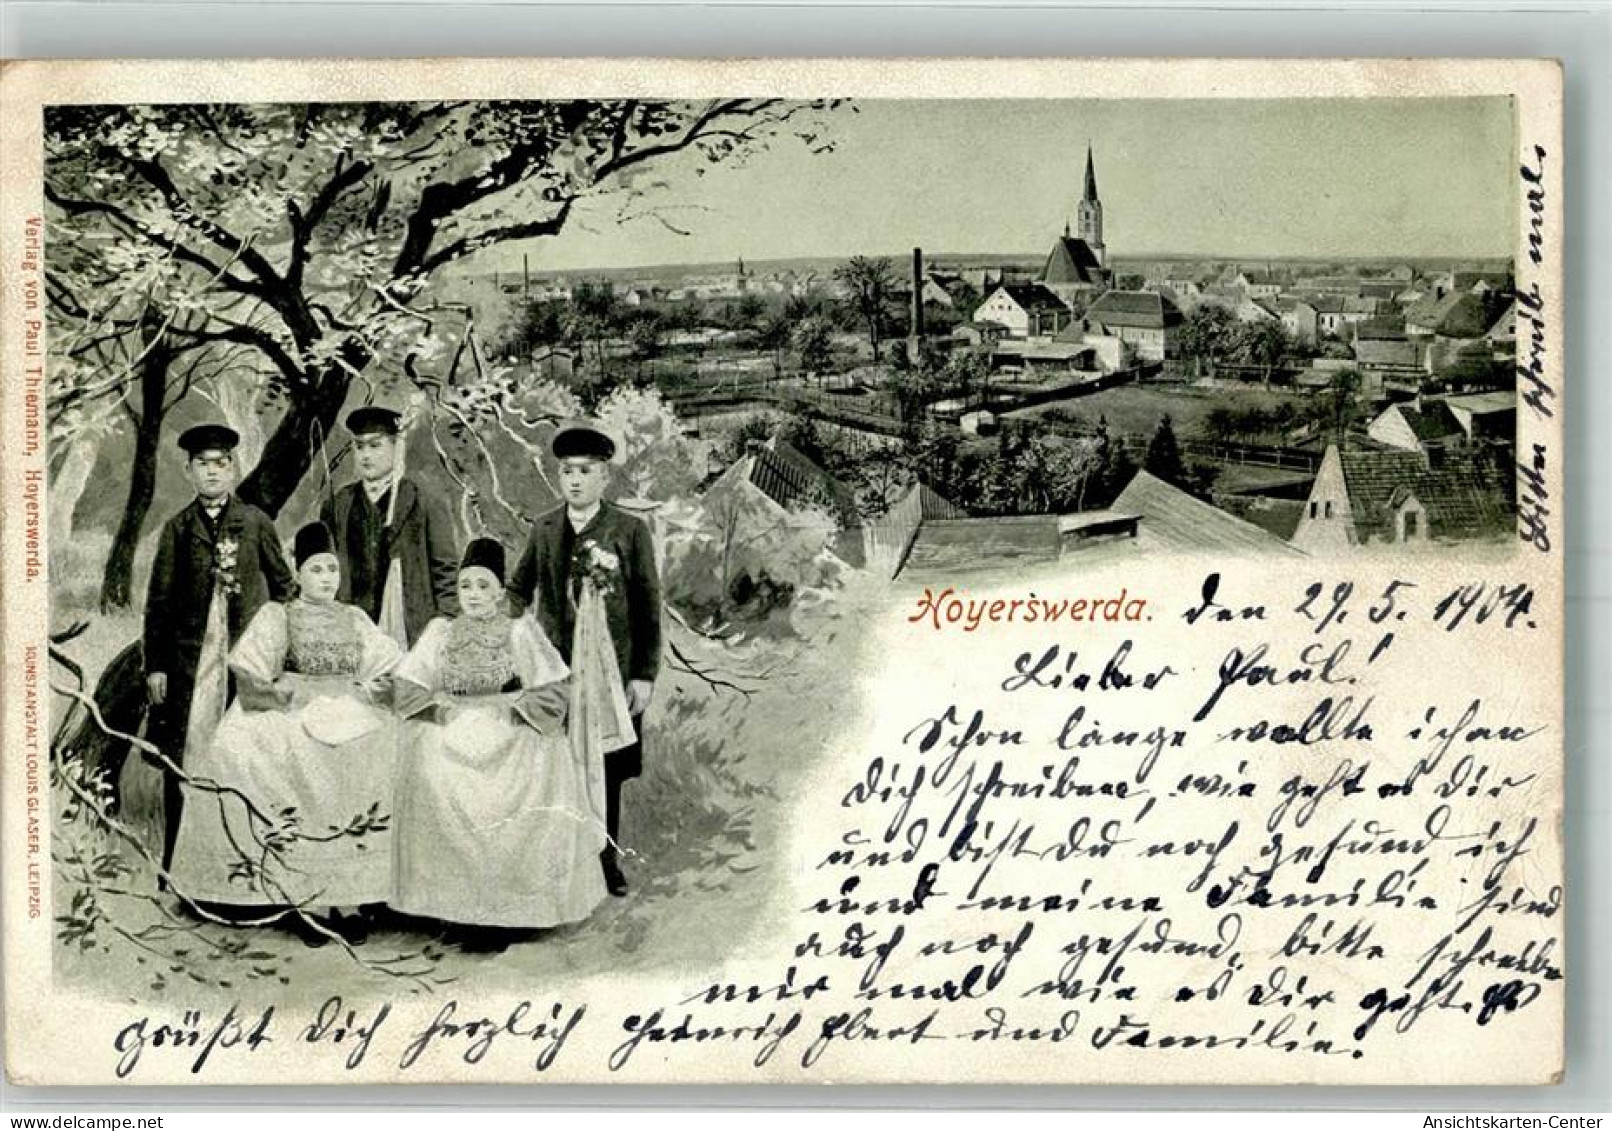 Hoyerswerda. den 29. 5. 1904.
Lieber Paul!
Schon lange wollte ich an
Dich schreiben, wie geht es Dir
und bist Du noch gesund, ich
und meine Familie sind
auch noch gesund, bitte schreibe
mir mal wie es Dir geht. Es
grüßt Dich herzlich Heinrich Ebert und Familie.
schreib mal
Verlag von Paul Thiemann, Hoyerswerda. KUNSTANSTALT LOUIS GLASER, LEIPZIG.
Ansichtskarten-Center